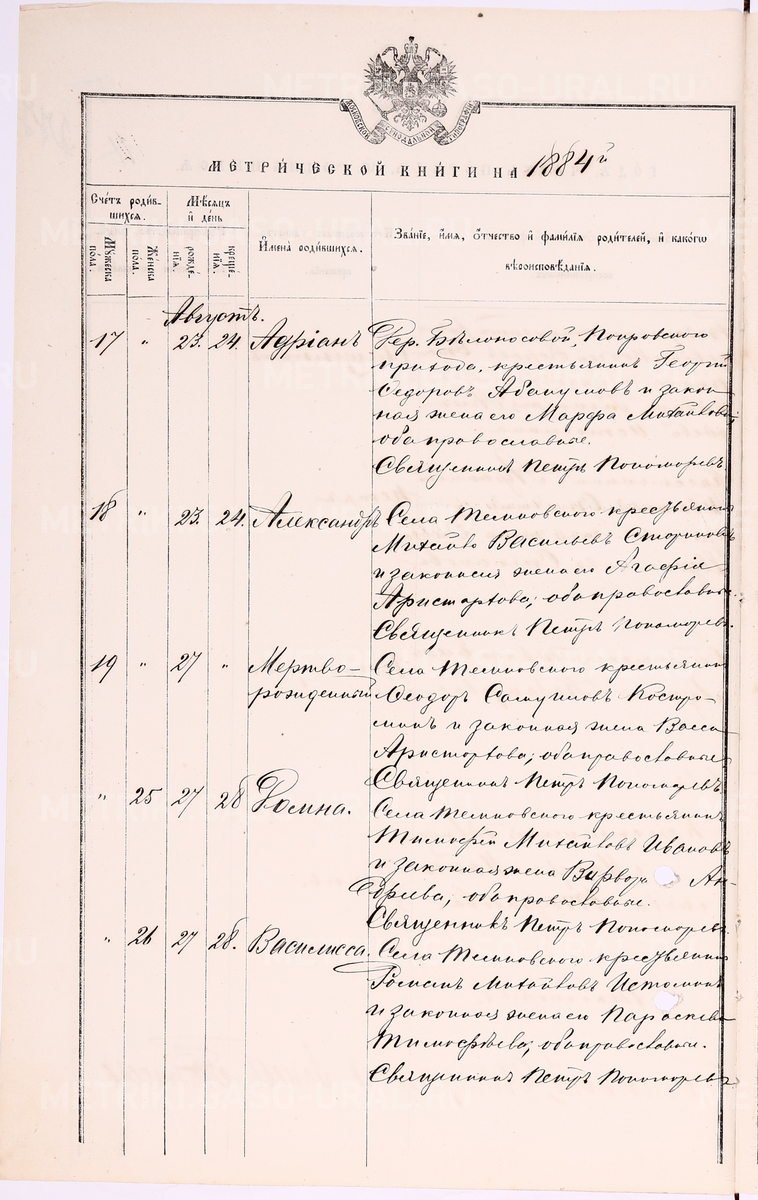 МОСКОВСКОЙ СИНОДАЛЬНОЙ ТИПОГРАФІИ
МЕТРИ́ЧЕСКОЙ КНИ́ГИ НА 1884й
Сче́тъ роди́в-
шихся.
Мꙋ́жеска
по́ла.
Же́нска
по́ла.
Мѣ́сяцъ
и҆ де́нь
рожде́-
нїѧ.
креще́-
нїѧ.
И҆мена̀ роди́вшихся.
Зва́нїе, и҆́мѧ, ѻ҆́тчество и҆ фами́лїѧ роди́телей, и҆ како́гѡ
вѣроисповѣ́данїѧ.
Августъ.
17 " 23. 24. Адріанъ Дер. Бѣлоносовой, Покровскаго
прихода, крестьянинъ Георгій
Ѳедоровъ Абакумовъ и закон-
ная жена его Марѳа Михайлова;
оба православные.
Священникъ Петръ Пономаревъ.
18 " 23. 24. Александръ Села Темновскаго крестьянинъ
Михаилъ Васильевъ
и законная жена его Агафія
Аристархова; оба православные.
Священникъ Петръ Пономаревъ.
19 " 27 " Мертво- Села Темновскаго крестьянинъ
рожденный Ѳеодоръ Самуиловъ Костро-
минъ и законная жена Васса
Аристархова; оба православные
Священникъ Петръ Пономаревъ
" 25 27 28 Домна. Села Темновскаго крестьянинъ
Тимофей Михайловъ Ивановъ
и законная жена Варвара Ан-
дреева, оба православные.
Священникъ Петръ Пономаревъ
" 26 27 28. Василисса. Села Темновскаго крестьянинъ
Романъ Михайловъ Истоминъ
и законная жена его Параскева
Тимофѣева; оба православные.
Священникъ Петръ Пономаревъ